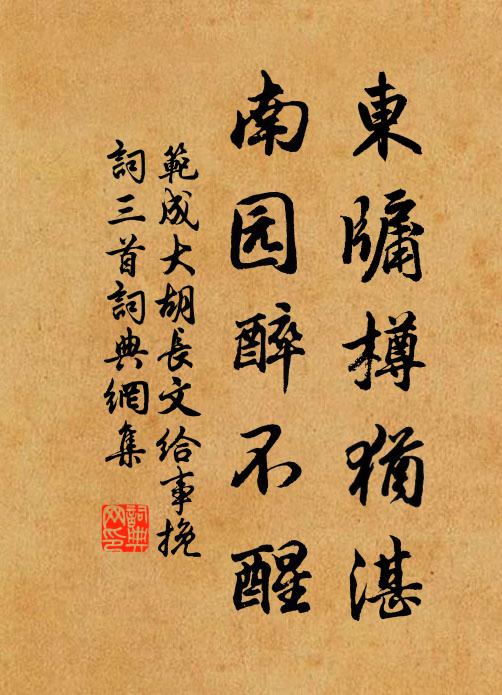 東牖樽猶湛
南园醉不醒
範成大胡長文给事挽
詞三首詞典網集
詞典
网印